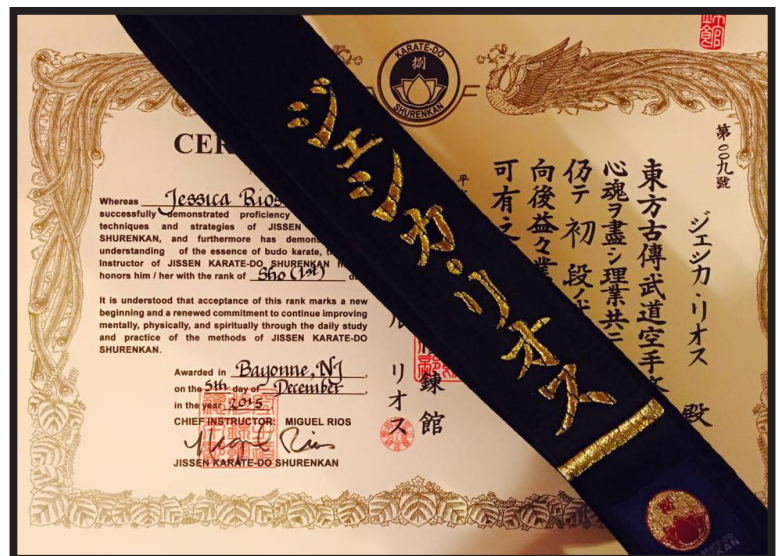 KARATE-DO
捌
SHURENKAN
CER
Whereas Jessica Rios
successfully demonstrated proficiency
techniques and strategies of JISSEN
SHURENKAN, and furthermore has demons
understanding of the essence of budo karate,
Instructor of JISSEN KARATE-DO SHURENKAN
honors him / her with the rank of Sho (1st)
It is understood that acceptance of this rank marks a new
beginning and a renewed commitment to continue improving
mentally, physically, and spiritually through the daily study
and practice of the methods of JISSEN KARATE-DO
SHURENKAN.
Awarded in Bayonne, NJ,
on the 5th day of December,
in the year 2015
CHIEF INSTRUCTOR: MIGUEL RIOS
Miguel Rios
JISSEN KARATE-DO SHURENKAN
ジェシカ・リオス
第〇〇九號
ジェシカ・リオス 殿
東方古傳武道空手
心魂ヲ盡シ理業共ニ
仍テ初段
向後益々業
可有之
平
錬館
ル リオス